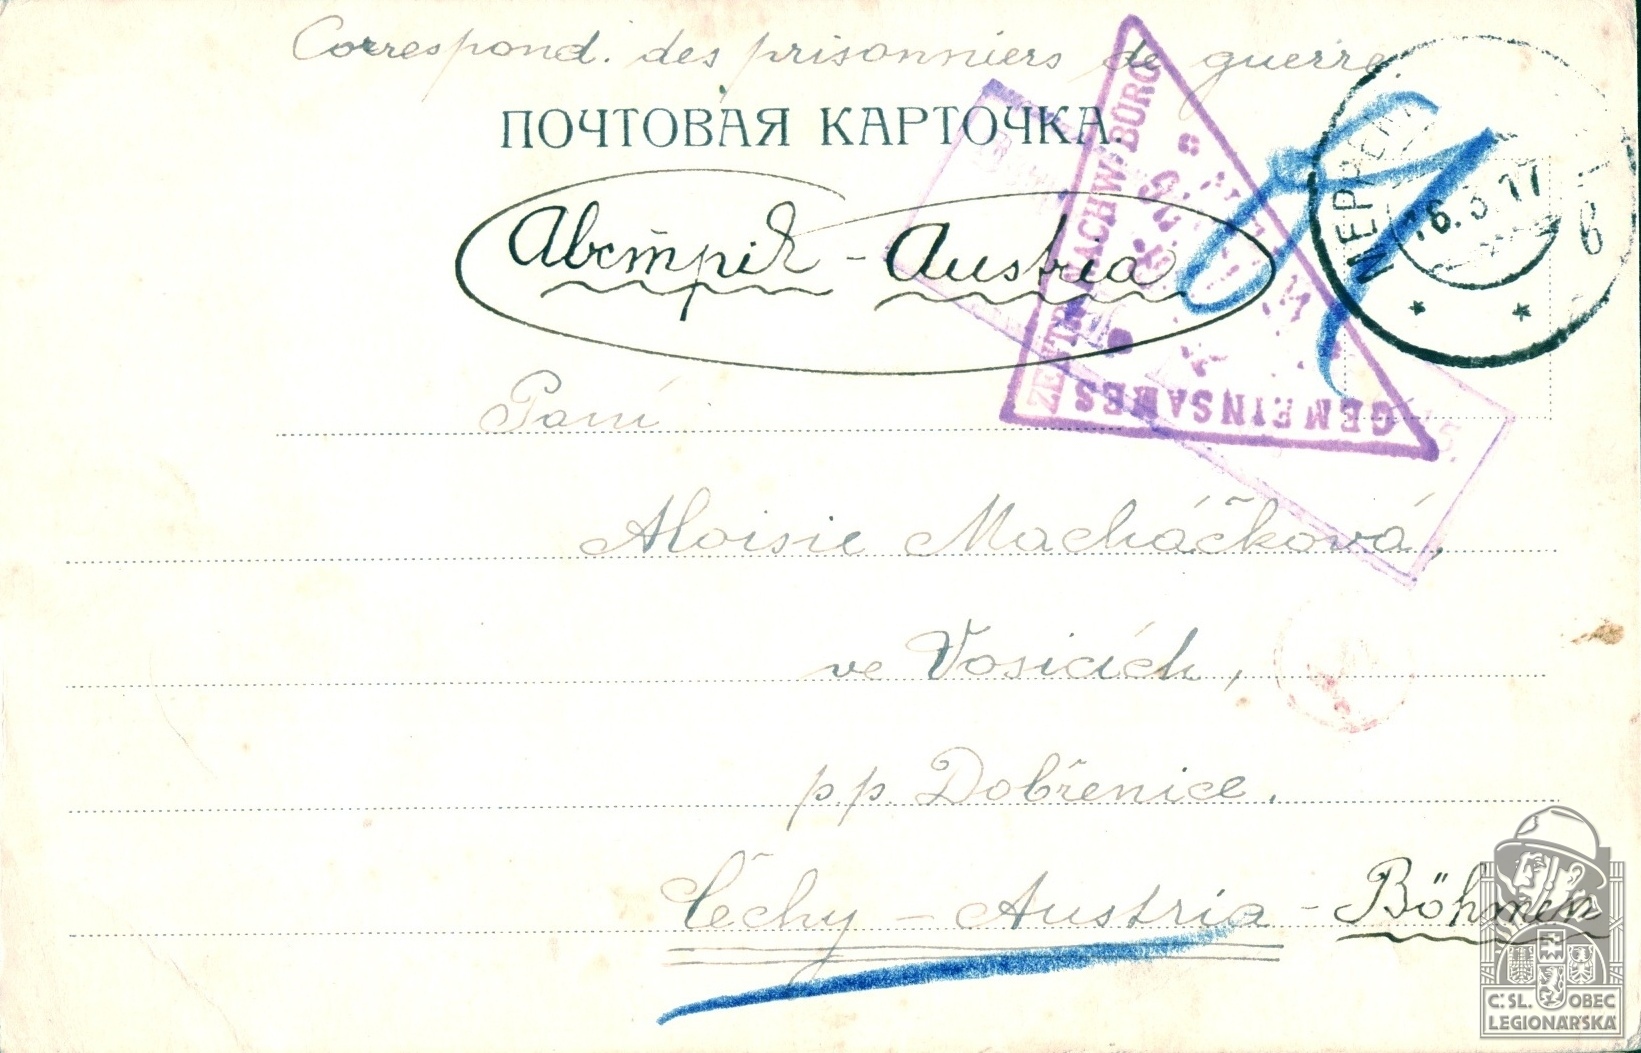 Correspond. des prisonniers de guerre.
ПОЧТОВАЯ КАРТОЧКА.
Австрія - Austria
Paní
Aloisie Macháčková,
ve Vosicích,
pp. Dobřenice.
Čechy - Austria - Böhmen
GEMEINSAMES
16.3.17
6
Č:SL. OBEC
LEGIONÁŘSKÁ